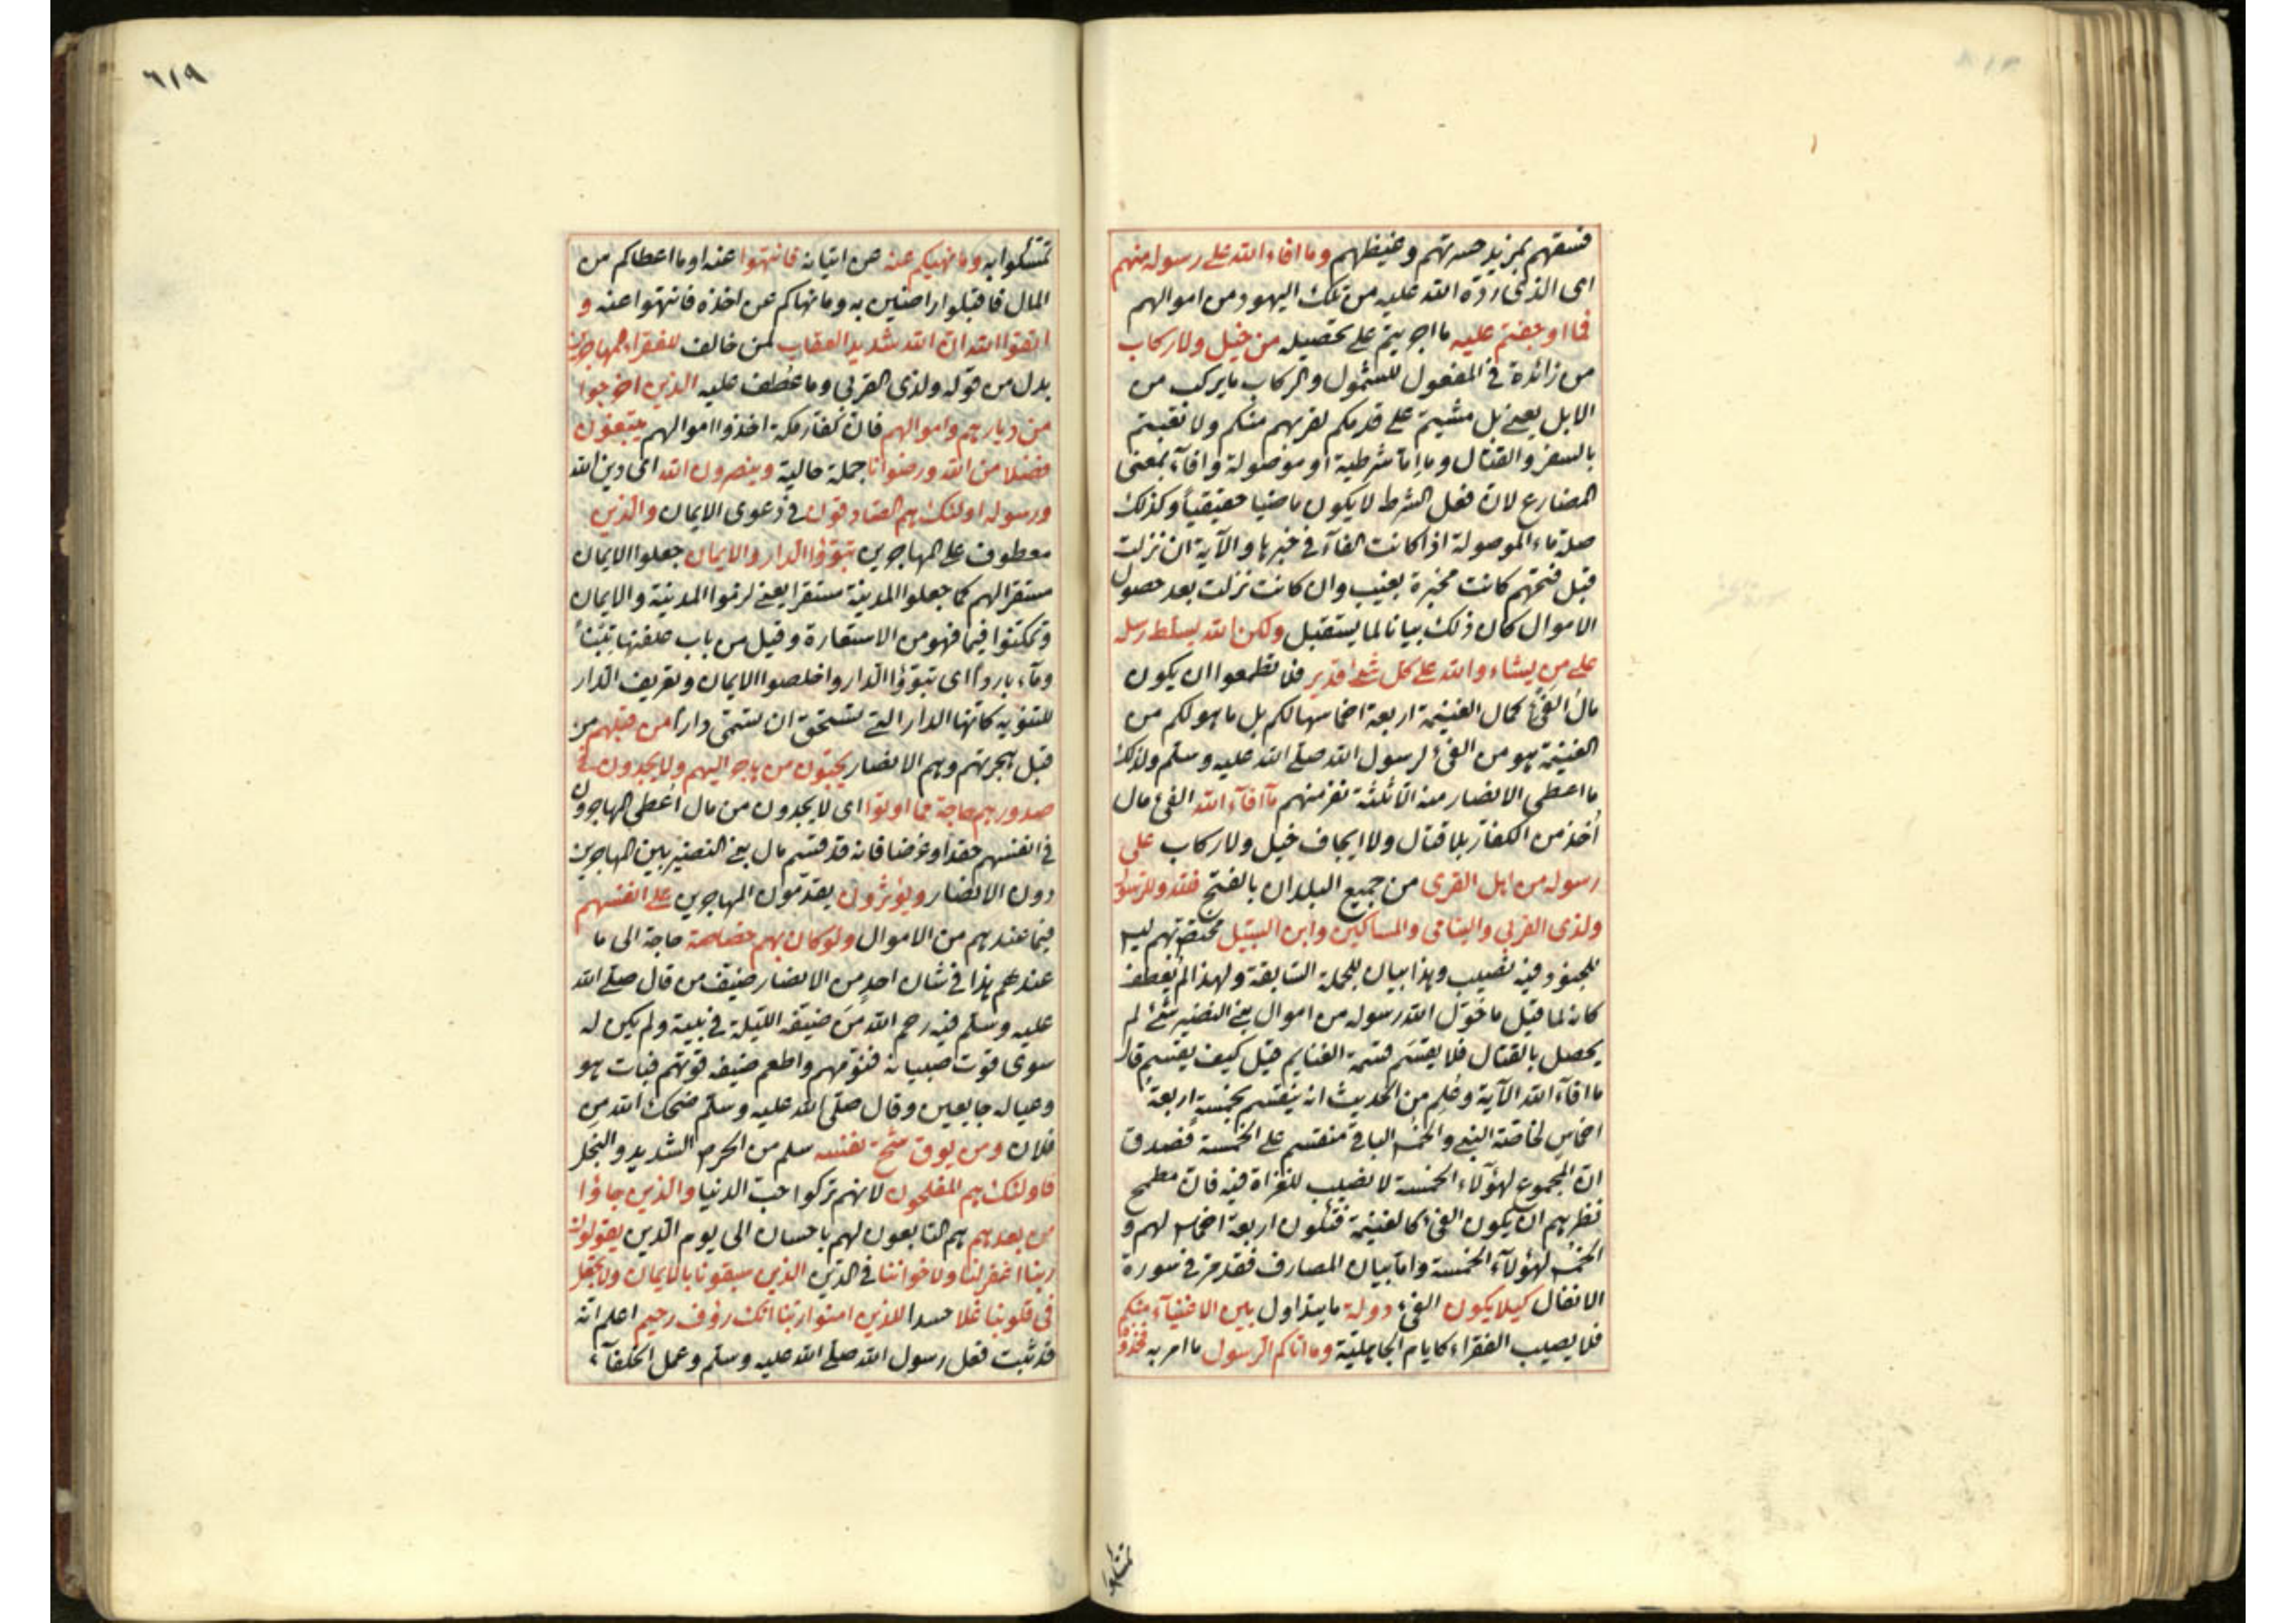 فسقهم بمزيد حسرتهم وغيظهم وما افاء الله على رسوله منهم
اى الذى ردّه الله عليه من تلك اليهود من اموالهم
فما اوجفتم عليه ما اجريتم على تحصيله من خيل ولا ركاب
من زائدة فى المفعول للشمول والركاب ما يركب من
الابل يعنى بل مشيتم على قدمكم لقربهم منكم ولا تعبتم
بالسفر والقتال وما امّا شرطية او موصولة وافآء بمعنى
المضارع لانّ فعل الشرط لا يكون ماضيا حقيقيا وكذلك
صلة ماء الموصولة اذا كانت الفآء فى خبرها والآية ان نزلت
قبل فتحهم كانت مخبرة بغيب وان كانت نزلت بعد حصول
الاموال كان ذلك بيانا لما يستقبل ولكن الله يسلط رسله
على من يشاء والله على كل شئ قدير فلا تطمعوا ان يكون
مال الفئ كمال الغنيمة اربعة اخماسها لكم بل ما هو لكم من
الغنيمة هو من الفئ لرسول الله صلى الله عليه وسلم ولذلك
ما اعطى الانصار منه الّا ثلثة نفر منهم مآ افآء الله الفئ مال
أخذ من الكفّار بلا قتال ولا ايجاف خيل ولا ركاب على
رسوله من اهل القرى من جميع البلدان بالفتح فلله وللرسول
ولذى القربى واليتامى والمساكين وابن السبيل مختصّ بهم ليس
للجنود فيه نصيب وهذا بيان للجملة السّابقة ولهذا لم يُعطف
كانه لما قيل ما خوّل الله رسوله من اموال بنى النضير شئ لم
يحصل بالقتال فلا يقسَم قسمة الغنايم قيل كيف يقسم قال
ما افآء الله الآية وعُلِم من الحديث انه ينقسم بخمسة اربعةُ
اخماسٍ لخاصّة النبى والخمس الباقى منقسم على الخمسة فصدق
انّ المجموع لهؤلآء الخمسة لا نصيب للغزاة فيه فانّ مطمح
نظرهم ان يكون الفئ كالغنيمة فتكون اربعة اخماس لهم و
الخمس لهؤلآء الخمسة وامّا بيان المصارف فقد مرّ فى سورة
الانفال كيلا يكون الفئ دولة ما يتداول بين الاغنيآء منكم
فلا يصيب الفقراء كايام الجاهليّة وما اتاكم الرّسول ما امر به فخذوه
تمسّكوا
٦١٩
تمسّكوا به وما نهيكم عنه عن اتيانه فانتهوا عنه او ما اعطاكم من
المال فاقبلوا راضين به وما نهاكم عن اخذه فانتهوا عنه و
اتقوا الله انّ الله شديد العقاب لمن خالف للفقراء المهاجرين
بدل من قوله ولذى القربى وما عُطف عليه الذين اخرجوا
من ديارهم واموالهم فانّ كفّار مكة اخذوا اموالهم يبتغون
فضلا من الله ورضوانا جملة حالية وينصرون الله اى دين الله
ورسوله اولئك هم الصّادقون فى دعوى الايمان والّذين
معطوف على المهاجرين تبوّؤا الدار والايمان جعلوا الايمان
مستقرا لهم كما جعلوا المدينة مستقرا يعنى لزموا المدينة والايمان
وتمكّنوا فيهما فهو من الاستعارة وقيل من باب علفتها تبنًا
ومآء باردا اى تبوّؤا الدار واخلصوا الايمان وتعريف الدار
للتنويه كانّها الدار التى تستحق ان تسمّى دارا من قبلهم من
قبل هجرتهم وهم الانصار يحبّون من هاجر اليهم ولا يجدون فى
صدورهم حاجة مما اوتوا اى لا يجدون من مال اُعطى المهاجرون
فى انفسهم حقدا وغرضا فانه قد قسم مال بنى النضير بين المهاجرين
دون الانصار ويؤثرون يقدّمون المهاجرين على انفسهم
فيما عندهم من الاموال ولو كان بهم خصاصة حاجة الى ما
عندهم هذا فى شان احدٍ من الانصار ضيّف من قال صلى الله
عليه وسلم فيه رحم الله مَن ضيّفه الليلة فى بيته ولم يكن له
سوى قوت صبيانه فنوّمهم واطعم ضيفه قوتهم فبات هو
وعياله جايعين وقال صلى الله عليه وسلم ضحك الله من
فلان ومن يوق شحّ نفسه سلم من الحرص الشديد والبخل
فاولئك هم المفلحون لانهم تركوا حبّ الدنيا والذين جاؤا
من بعدهم هم التابعون لهم باحسان الى يوم الدين يقولون
ربنا اغفر لنا ولاخواننا فى الدين الذين سبقونا بالايمان ولا تجعل
فى قلوبنا غلا حسدا للذين امنوا ربّنا انّك رؤف رحيم اعلم انّه
قد ثبت فعل رسول الله صلى الله عليه وسلم وعمل الخلفآء